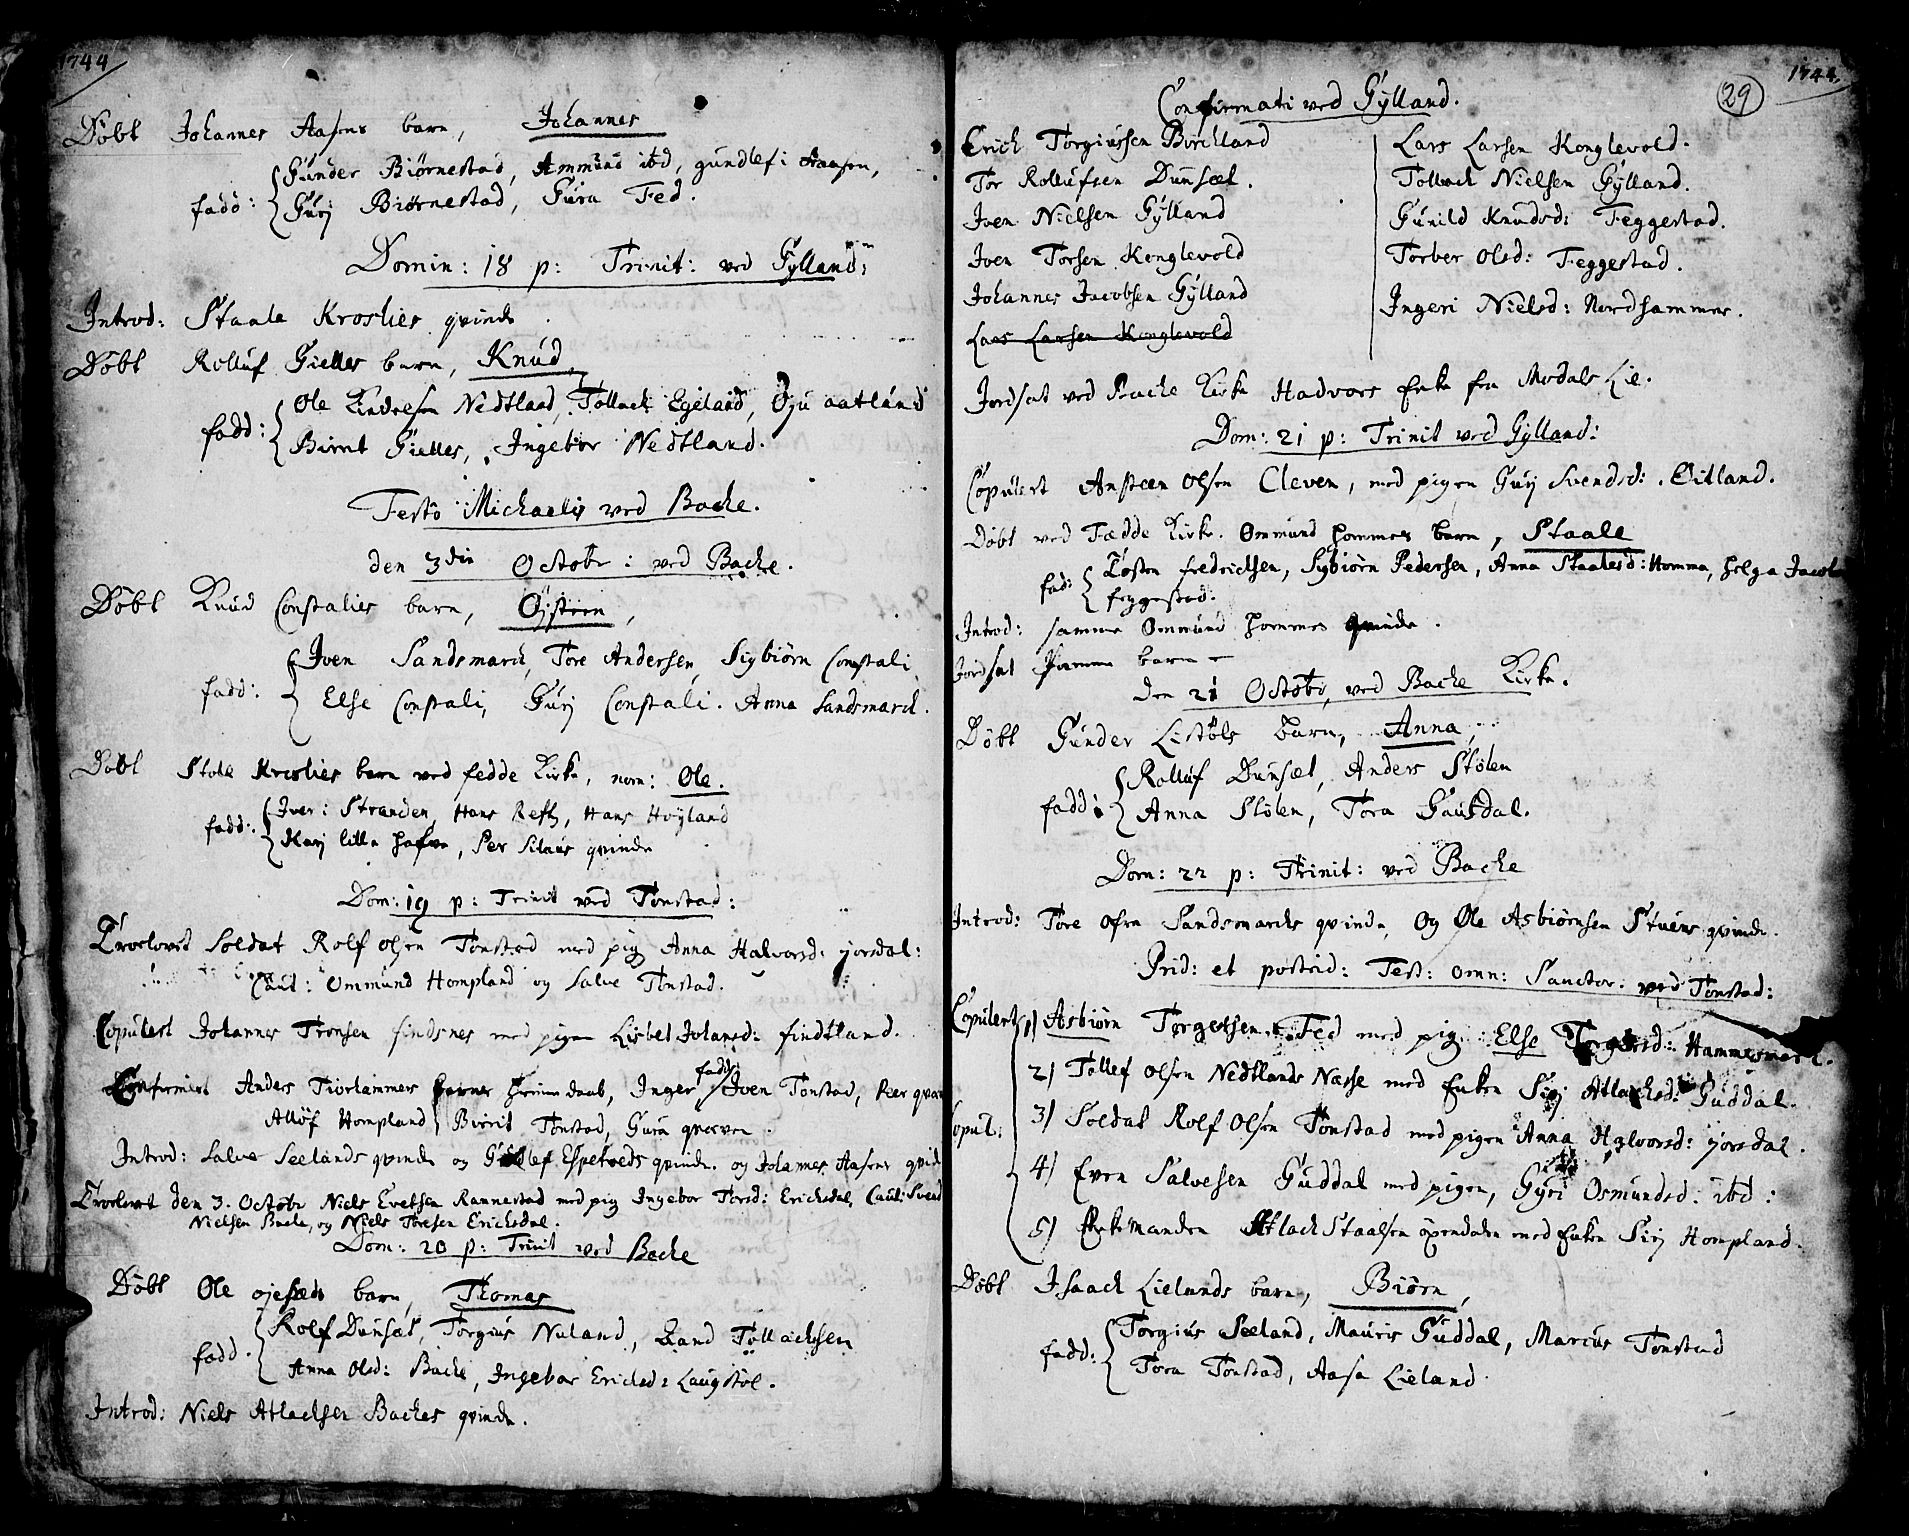 1744
Döbt Johannes Aasens barn, Johannes
fadd: Gunder Biørnestad, Ammund ibd, gundlef i Aaasen,
Gurj Biørnestad, Gura Fed.
Domin: 18 p: Trinit: ved Gylland:
Introd: Staale Kroslies qvinde.
Döbt Rolluf Gielles barn, Knud,
fadd: Ole Nedtland, Tollach Egeland, Oju aatland
Birnt Gielles, Ingebor Nedtland.
Festo Michaelis ved Bache.
den 3die Octobr: ved Bache.
Döbt Knud Constalies barn, Öjsteen,
fadd: Iven Sandsmarck, Tore Andersen, Sigbiörn Constali
Else Constali, Gurj Constali. Anna Sandsmarck.
Döbt Stole Kroslies barn ved fedde Kirke, nom: Ole.
fadd: Iver: Stranden, Hans Refs, Hans Höyland
Karj lille Hafve, Per Silaus qvinde
Dom: 19 p: Trinit ved Tonstad:
Troelovet Soldat Rolf Olsen Tonstad med pig Anna Halvorsd: jorsdal:
Caut: Ommund Hompland og Salve Tonstad.
Copulert Johannes Tronsen findsnes med pigen Lisbet Johansd: findtland.
Confirmert Anders Tiorhammers barns hiemme daab, Inger fadd: Iven Tonstad, Peer qveven
Allöf Hompland Birrit Tonstad, Gura qveven.
Introd: Salve Seelands qvinde og Espetveds qvinde. og Johannes Aasens qvinde
Troelovet den 3. Octobr Niels Evetsen Rannestad med pig Ingebor Torsd: Ericksdal, Caut: Svend
Nielsen Bache, og Niels Toresen Ericksdal.
Dom: 20 p: Trinit ved Bache
Döbt Ole barn, Thomas
fadd. Rolf Dunsæt, Torgius Nuland, Rand Tollachsen
Anna Olsd: Bache, Ingebor Ericksd: Laugstöl.
Introd: Niels Atlachsen Baches qvinde.
1744.
29
Confirmati ved Gylland.
Erich Torgiussen Birckland
Tor Rollufsen Dunsæt.
Iven Nielsen Gylland
Iven Torsen Konglevold
Johannes Jacobsen Gylland
Lars Larsen Konglevold
Lars Larsen Konglevold.
Tollach Nielsen Gylland.
Gunild Knudsd: Feggestad.
Torber Olsd: Feggestad.
Ingeri Nielsd: Nordhammer.
Jordsat ved Bache Kirke Hadvors Enke fra Modals Lie.
Dom: 21 p: Trinit ved Gylland:
Copulert Ansteen Olsen Cleven, med pigen Gurj Svendsd: Eitland.
Döbt ved Fædde Kirke. Ommund Hommes barn, Staale
fad: Tosten fredrichsen, Sybiörn Pedersen, Anna Staalesd: Homma, Helga Jacobs
feggestad.
Introd: samme Ommund Hommes qvinde.
Jordsat samme barn
den 21 Octobr, ved Bache Kirke.
Döbt Gunder Listöls barn, Anna,
fadd: Rolluf Dunsæt, Anders Stölen
Anna Stölen, Tora Gausdal.
Dom: 22 p: Trinit: ved Bache
Introd: Tore ofre Sandsmarcks qvinde, og Ole Asbiörnsen Stuens qvinde.
Prid: et postrid: Fest: omn: Sanctor: ved Tonstad:
Copulert 1) Asbiörn Torgersen Fed med pig: Else Torgersd: Hammersmarck.
2) Tollef Olsen Nedtlands Nasse med Enken Sirj Atlachsd: Guddal.
Copul: 3) Soldat Rolf Olsen Tonstad med pigen Anna Halvorsd: jorsdal.
4) Even Salvesen Guddal med pigen, Gyri Osmundsd: ibd:
5) Enkemanden Atlach Staalsen öpendalen med Enken Sirj Hompland.
Döbt Isaach Lielands barn, Biörn,
fadd: Torgius Seeland, Mauris Guddal, Marcus Tonstad
Tora Tonstad, Aasa Lieland.